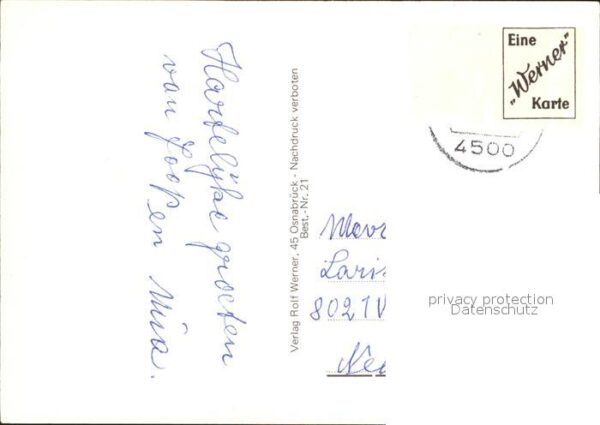 Hartelijke groeten
van Joop en Mia.
Verlag Rolf Werner, 45 Osnabrück - Nachdruck verboten
Best.-Nr. 21
Eine
„Werner"
Karte
4500
Mevr
8021V
privacy protection
Datenschutz